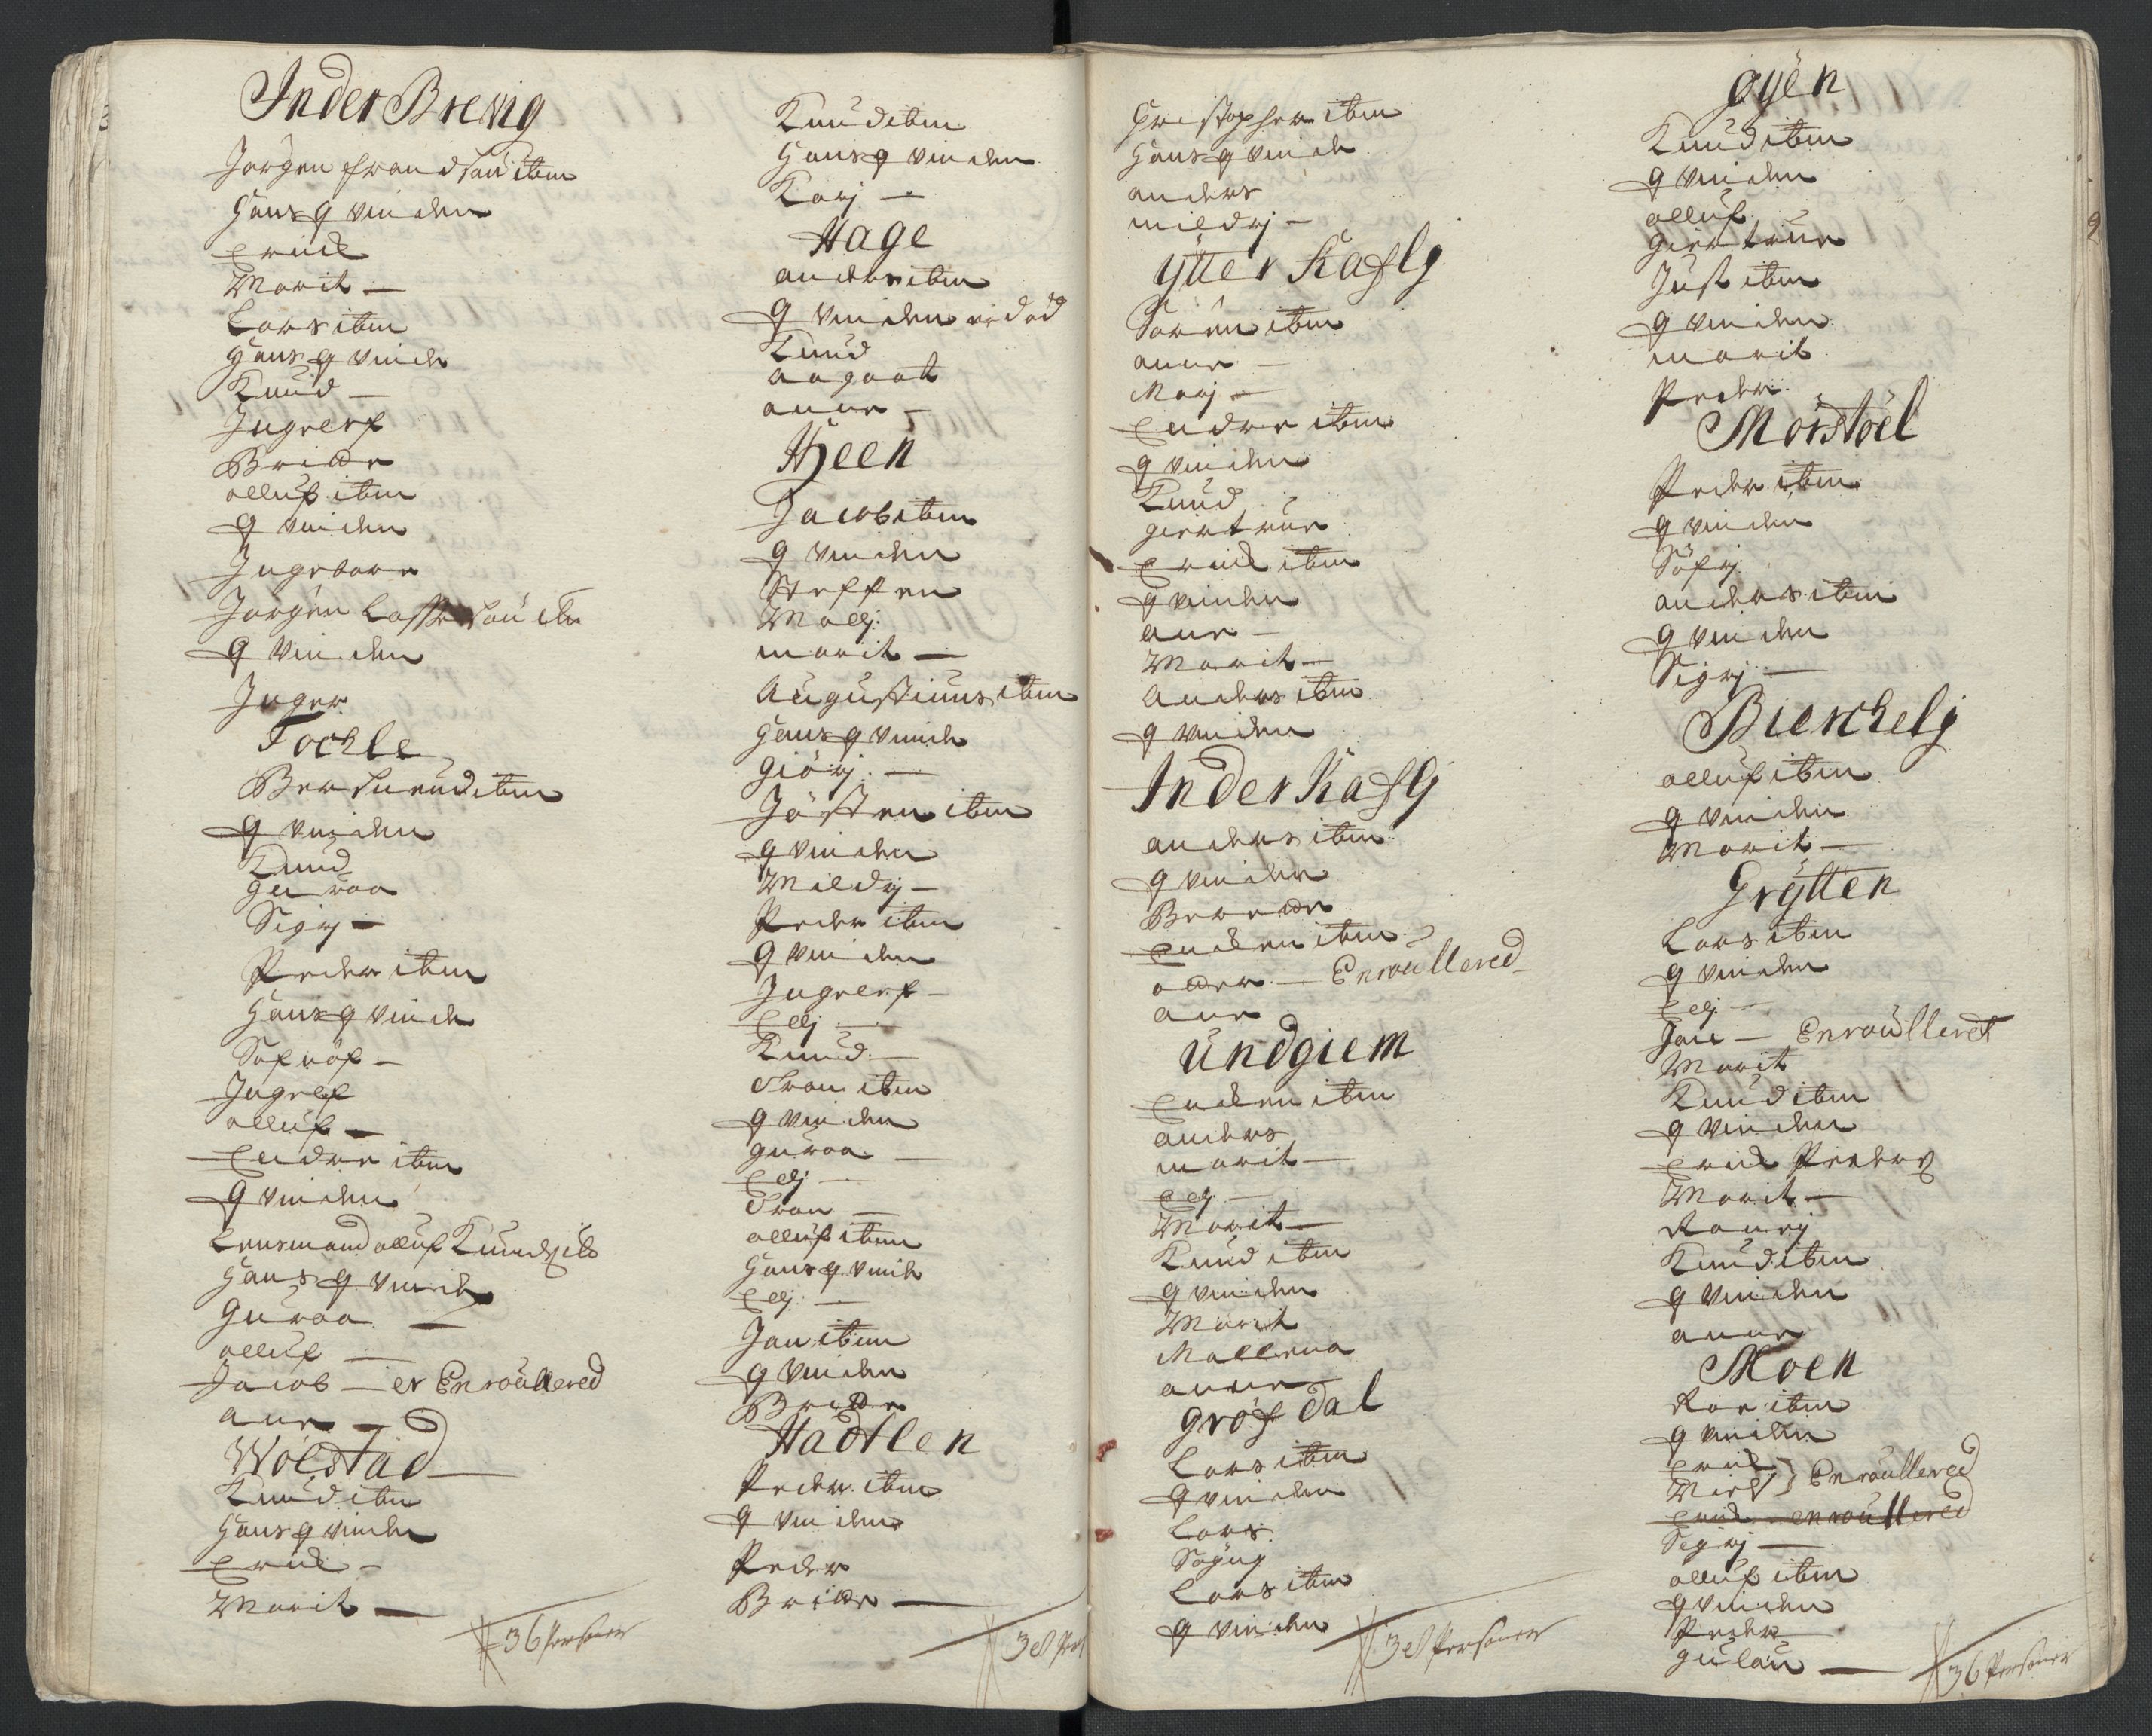 Inder Brevig
Jørgen frandsøn ibm
Hans qvinden
Erick
Marit —
Lars ibm
Hans qvinde
Knud —
Ingrerf
Bride
olluf ibm
qvinden
Ingebore
Jørgen Lasseson ibm
qvinden
Inger
Tochle
Bersuend ibm
qvinden
Knud
Guroa
Sigrj —
Peder ibm
Hans qvinde
Sofrøf —
Ingrerf
olluf —
Endre ibm
qvinden
Lensmand olluf Knudz ib
Hans qvinde
Guroa —
olluf —
Jacob — er Enroullered
ane —
Wolstad —
Knud ibm
Hans qvinde
Erick —
Marit —
36 Personer
Knud ibm
Hans qvinden
Karj —
Hage
anders ibm
qvinden er død
Knud
aagaat
anne —
Heen
Jacob ibm
qvinden
Steffen
Mallj
marit —
Augustinus ibm
Hans qvinde
giörj —
Jösten ibm
qvinden
Mildrj —
Peder ibm
qvinden
Ingrerf —
Elj —
Knud —
Tron ibm
qvinden
guroa —
Elj —
Tron —
olluf ibm
Hans qvinde
Elj —
Jon ibm
qvinden
Bride
Hadtlen
Peder ibm
qvinden
Peder
Bride —
38 Per
Christopher ibm
Hans qvinde
anders
mildrj —
ytter Kaflj
Sören ibm
anne —
Marj —
Endre ibm
qvinden
Knud
giertrue
Erick ibm
qvinden
ane —
Marit —
Anders ibm
qvinden
Inder Kaflj
anders ibm
qvinden
Berede
Enden ibm
oder — Enroullered
ane
Undgiem
Enden ibm
anders
marit —
Elj —
Marit —
Knud ibm
qvinden
Marit
Mallena
anne
grøfdal
Lars ibm
qvinden
Lars
Sögng
Lars ibm
qvinden
38 Personer
øyen
Knud ibm
qvinden
olluf
giertrue
Just ibm
qvinden
marit
Peder
Morstöel
Peder ibm
qvinden
Söfrj
anders ibm
qvinden
Sigrj —
Bierchelj
olluf ibm
qvinden
Marit —
Grytten
Lars ibm
qvinden
Elj —
Jon — Enroulleret
Marit
Knud ibm
qvinden
Erick Pederz
Marit —
Ranrj
Knud ibm
qvinden
anne
Moen
Roe ibm
qvinden
Erick
Niels } Enroullered
Erick enroullered
Sigrj —
olluf ibm
qvinden
Peder
gulou —
36 Personer